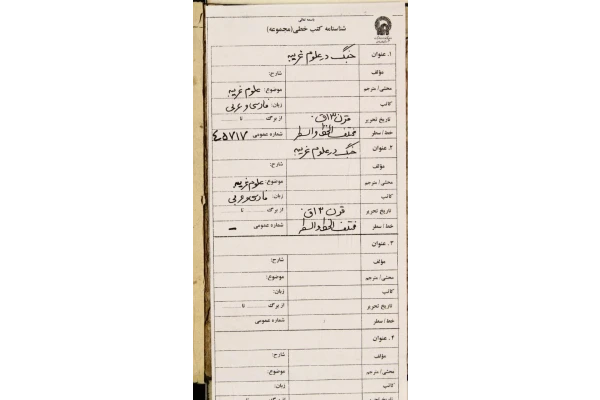 باسمه تعالی
شناسنامه کتب خطی (مجموعه)
۱. عنوان جنگ در علوم غریبه
مؤلف شارح:
محشی/ مترجم موضوع: علوم غریبه
کاتب زبان: فارسی و عربی
تاریخ تحریر قرن ۱۳ق از برگ ........ تا ........
خط/ سطر مختلف الخط والسطر شماره عمومی ۴۵۷۱۷
۲. عنوان جنگ در علوم غریبه
مؤلف شارح:
محشی/ مترجم موضوع: علوم غریبه
کاتب زبان: فارسی و عربی
تاریخ تحریر قرن ۱۳ق از برگ ........ تا
خط/ سطر مختلف الخط والسطر شماره عمومی –
۳. عنوان
مؤلف شارح:
محشی/ مترجم موضوع:
کاتب زبان:
تاریخ تحریر از برگ ........ تا ........
خط/ سطر شماره عمومی
۴. عنوان
مؤلف شارح:
محشی/ مترجم موضوع:
کاتب زبان:
تاریخ تحریر از برگ ........ تا